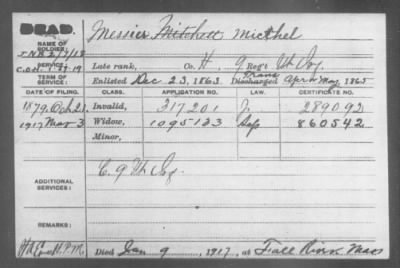 DEAD.
NAME OF SOLDIER: Messier Mitchell Micthel
SERVICE:
Late rank, Co. H, 9 Reg't Vt Inf.
TERM OF SERVICE: Enlisted Dec 23, 1863 Trans Discharged Apr May, 1865
DATE OF FILING. CLASS. APPLICATION NO. LAW. CERTIFICATE NO.
1879. Oct 21. Invalid, 317201 J. 289092
1917 Mar 3 Widow, 1095133 860542
Minor,
ADDITIONAL SERVICES: C. 9 Vt Inf.
REMARKS:
Died Jan 9, 1917, at Fall River Mass